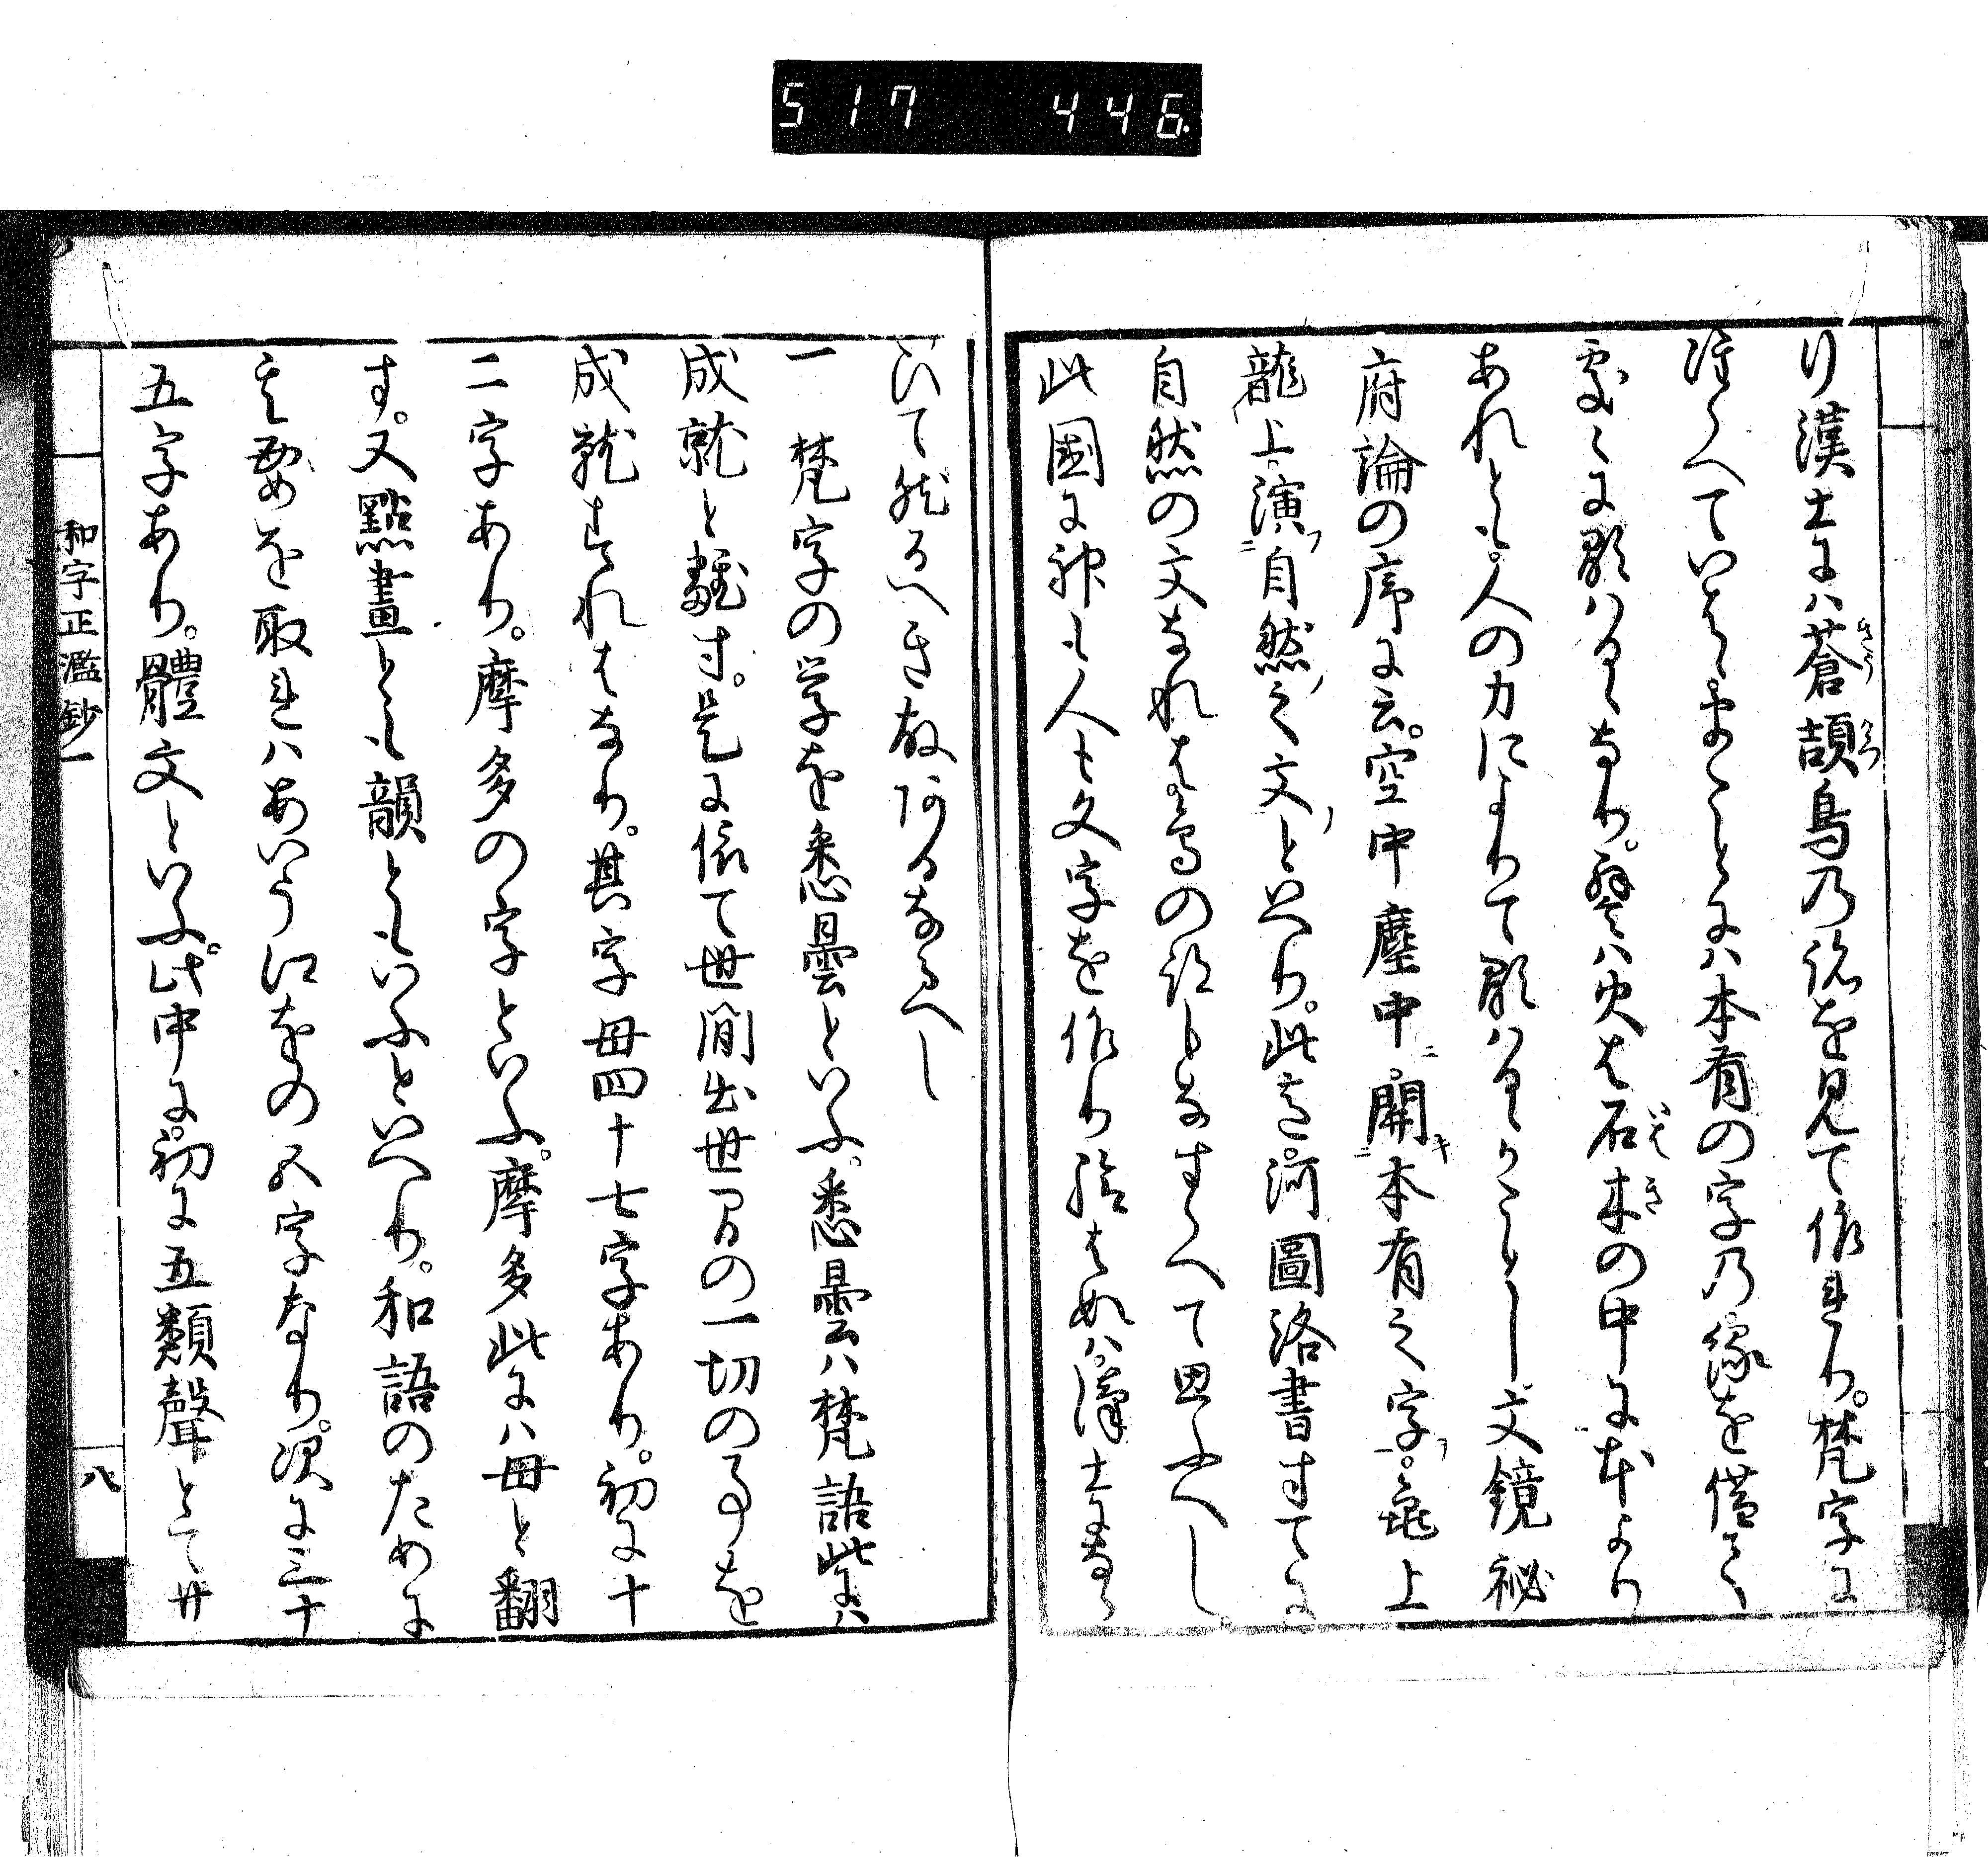 517 446
り漢土には蒼頡鳥の跡を見て作れり。梵字に
准らへていはゝまことには本有の字の縁を借て
処々に顕はるゝなり。譬は火は石木の中に本より
あれとも。人の力によりて顕はるゝかことし。文鏡秘
府論の序に云。空中塵中開本有之字。龜上
龍上演自然之文といへり。此意河圖洛書すてに
自然の文なれは鳥の跡もなすらへて思ふへし。
此國に神も人も文字を作り給はぬは漢土になら
ひて然るへき故あるなるへし
一 梵字の学を悉曇といふ。悉曇は梵語此には
成就と飜す。是に依て世間出世間の一切の事を
成就すれはなり。其字母四十七字あり。初に十
二字あり。摩多の字といふ。摩多此には母と翻
す。又點畫とも韻ともいふといへり。和語のために
其要を取れはあいうえをの五字なり。次に三十
五字あり。體文といふ。此中に初に五類聲とて廿
和字正濫鈔一
八